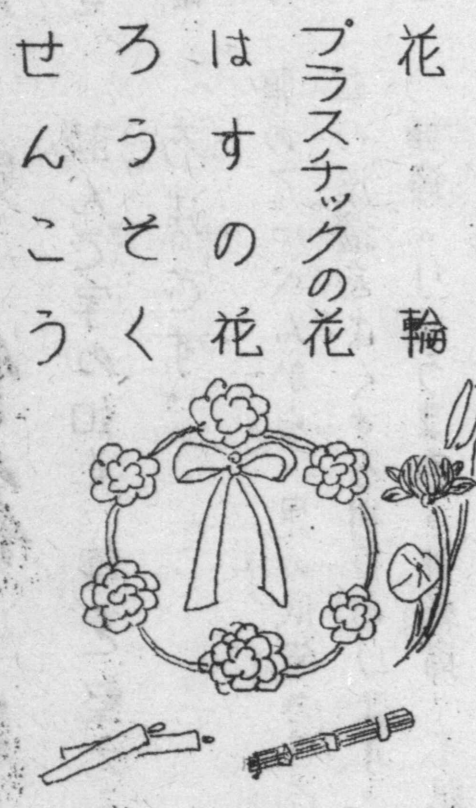 花輪
プラスチックの花
はすの花
ろうそく
せんこう